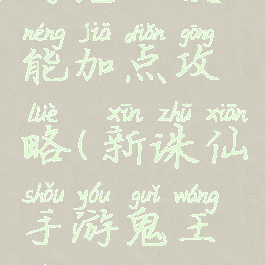 néng jiā diǎn gōng
能加点攻
lüè xīn zhū xiān
略(新诛仙
shǒu yóu guǐ wáng
手游鬼王